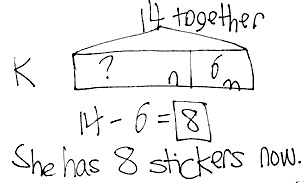 14 together
K ? n 6 n
14 - 6 = 8
She has 8 stickers now.